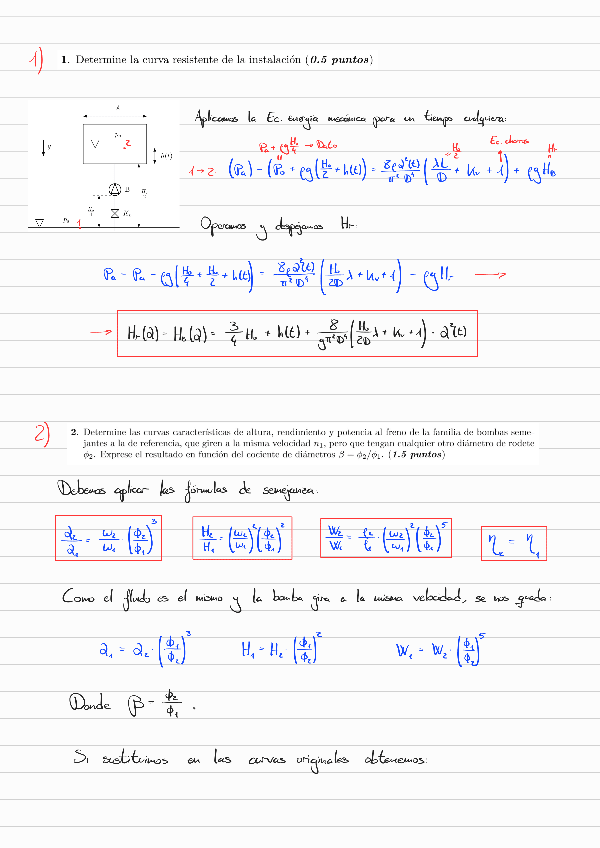 1)
1. Determine la curva resistente de la instalación (0.5 puntos)
Aplicamos la Ec. energía mecánica para un tiempo cualquiera:
Pa + ρg H₀/4 → Dato
H₀/2
Ec. chorro
Hr
1→2 (Pa) - (P₀ + ρg(H₀/2 + h(t))) = 8ρQ²(t)/π²D⁴ (λL/D + Kv + 1) + ρg HB
Operamos y despejamos Hr:
Pa - Pa - ρg(H₀/4 + H₀/2 + h(t)) = 8ρQ²(t)/π²D⁴ (H₀/2D λ + Kv + 1) - ρg Hr →
→ Hr(Q) = HB(Q) = 3/4 H₀ + h(t) + 8/gπ²D⁴ (H₀/2D λ + Kv + 1) · Q²(t)
2)
2. Determine las curvas características de altura, rendimiento y potencia al freno de la familia de bombas seme-
jantes a la de referencia, que giren a la misma velocidad n₁, pero que tengan cualquier otro diámetro de rodete
ϕ₂. Exprese el resultado en función del cociente de diámetros β = ϕ₂/ϕ₁. (1.5 puntos)
Debemos aplicar las fórmulas de semejanza:
Q₂/Q₁ = ω₂/ω₁ · (ϕ₂/ϕ₁)³
H₂/H₁ = (ω₂/ω₁)² (ϕ₂/ϕ₁)²
W₂/W₁ = ρ₂/ρ₁ · (ω₂/ω₁)² (ϕ₂/ϕ₁)⁵
η₂ = η₁
Como el fluido es el mismo y la bomba gira a la misma velocidad, se nos queda:
Q₁ = Q₂ · (ϕ₁/ϕ₂)³
H₁ = H₂ · (ϕ₁/ϕ₂)²
W₁ = W₂ · (ϕ₁/ϕ₂)⁵
Donde β = ϕ₂/ϕ₁ .
Si sustituimos en las curvas originales obtenemos: